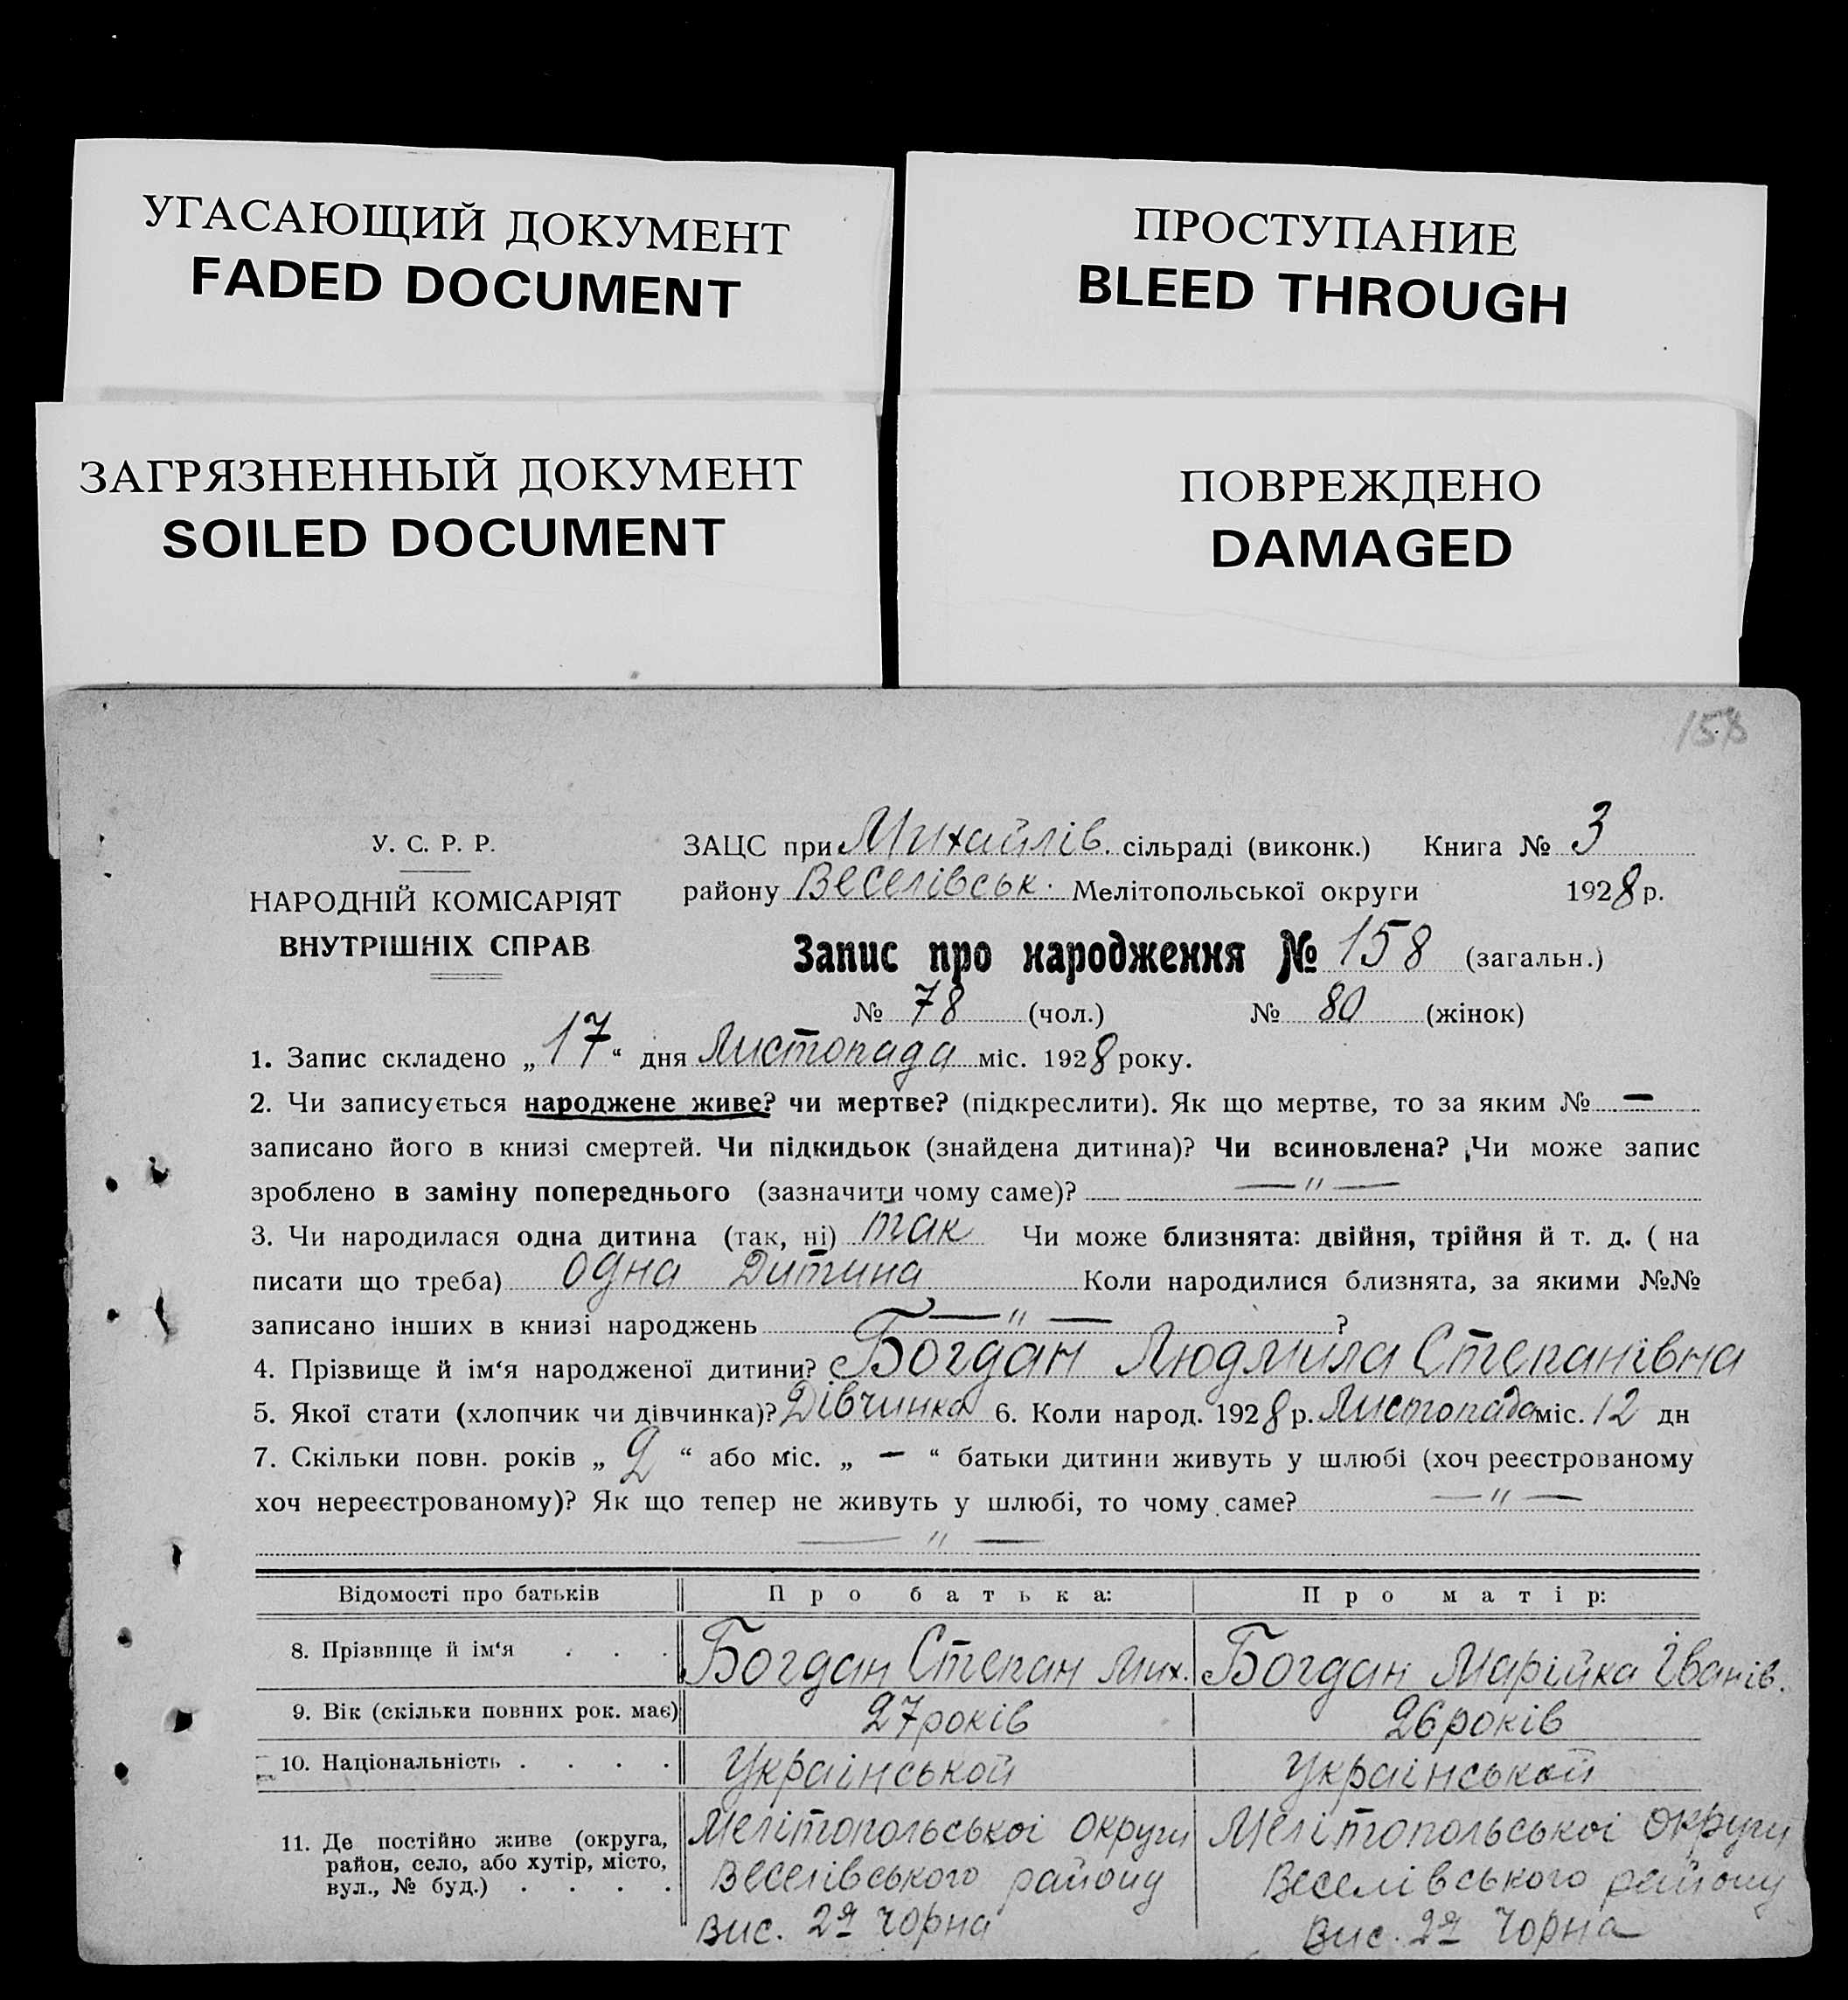 УГАСАЮЩИЙ ДОКУМЕНТ
FADED DOCUMENT
ПРОСТУПАНИЕ
BLEED THROUGH
ЗАГРЯЗНЕННЫЙ ДОКУМЕНТ
SOILED DOCUMENT
ПОВРЕЖДЕНО
DAMAGED
158
У. С. Р. Р.
НАРОДНІЙ КОМІСАРІЯТ
ВНУТРІШНІХ СПРАВ
ЗАЦС при Михайлів. сільраді (виконк.) Книга № 3
району Веселівськ. Мелітопольської округи 1928 р.
Запис про народження № 158 (загальн.)
№ 78 (чол.) № 80 (жінок)
1. Запис складено „17“ дня Листопада міс. 1928 року.
2. Чи записується народжене живе? чи мертве? (підкреслити). Як що мертве, то за яким № —
записано його в книзі смертей. Чи підкидьок (знайдена дитина)? Чи всиновлена? Чи може запис
зроблено в заміну попереднього (зазначити чому саме)? — " —
3. Чи народилася одна дитина (так, ні) так Чи може близнята: двійня, трійня й т. д. ( на
писати що треба) одна Дитина Коли народилися близнята, за якими №№
записано інших в книзі народжень — " — ?
4. Прізвище й ім‘я народженої дитини? Богдан Людмила Степанівна
5. Якої стати (хлопчик чи дівчинка)? Дівчинка 6. Коли народ. 1928 р. Листопада міс. 12 дн
7. Скільки повн. років „ 2 “ або міс. „ — “ батьки дитини живуть у шлюбі (хоч реєстрованому
хоч нереєстрованому)? Як що тепер не живуть у шлюбі, то чому саме? — " —
— " —
Відомості про батьків Про батька: Про матір:
8. Прізвище й ім‘я . . . Богдан Степан Мих. Богдан Марійка Іванів.
9. Вік (скільки повних рок. має) 27 років 26 років
10. Національність . . . . Українськой Українськой
11. Де постійно живе (округа, Мелітопольської округи Мелітопольської округи
район, село, або хутір, місто, Веселівського району Веселівського району
вул., № буд.) . . . . Вис. 2я Чорна Вис. 2я Чорна